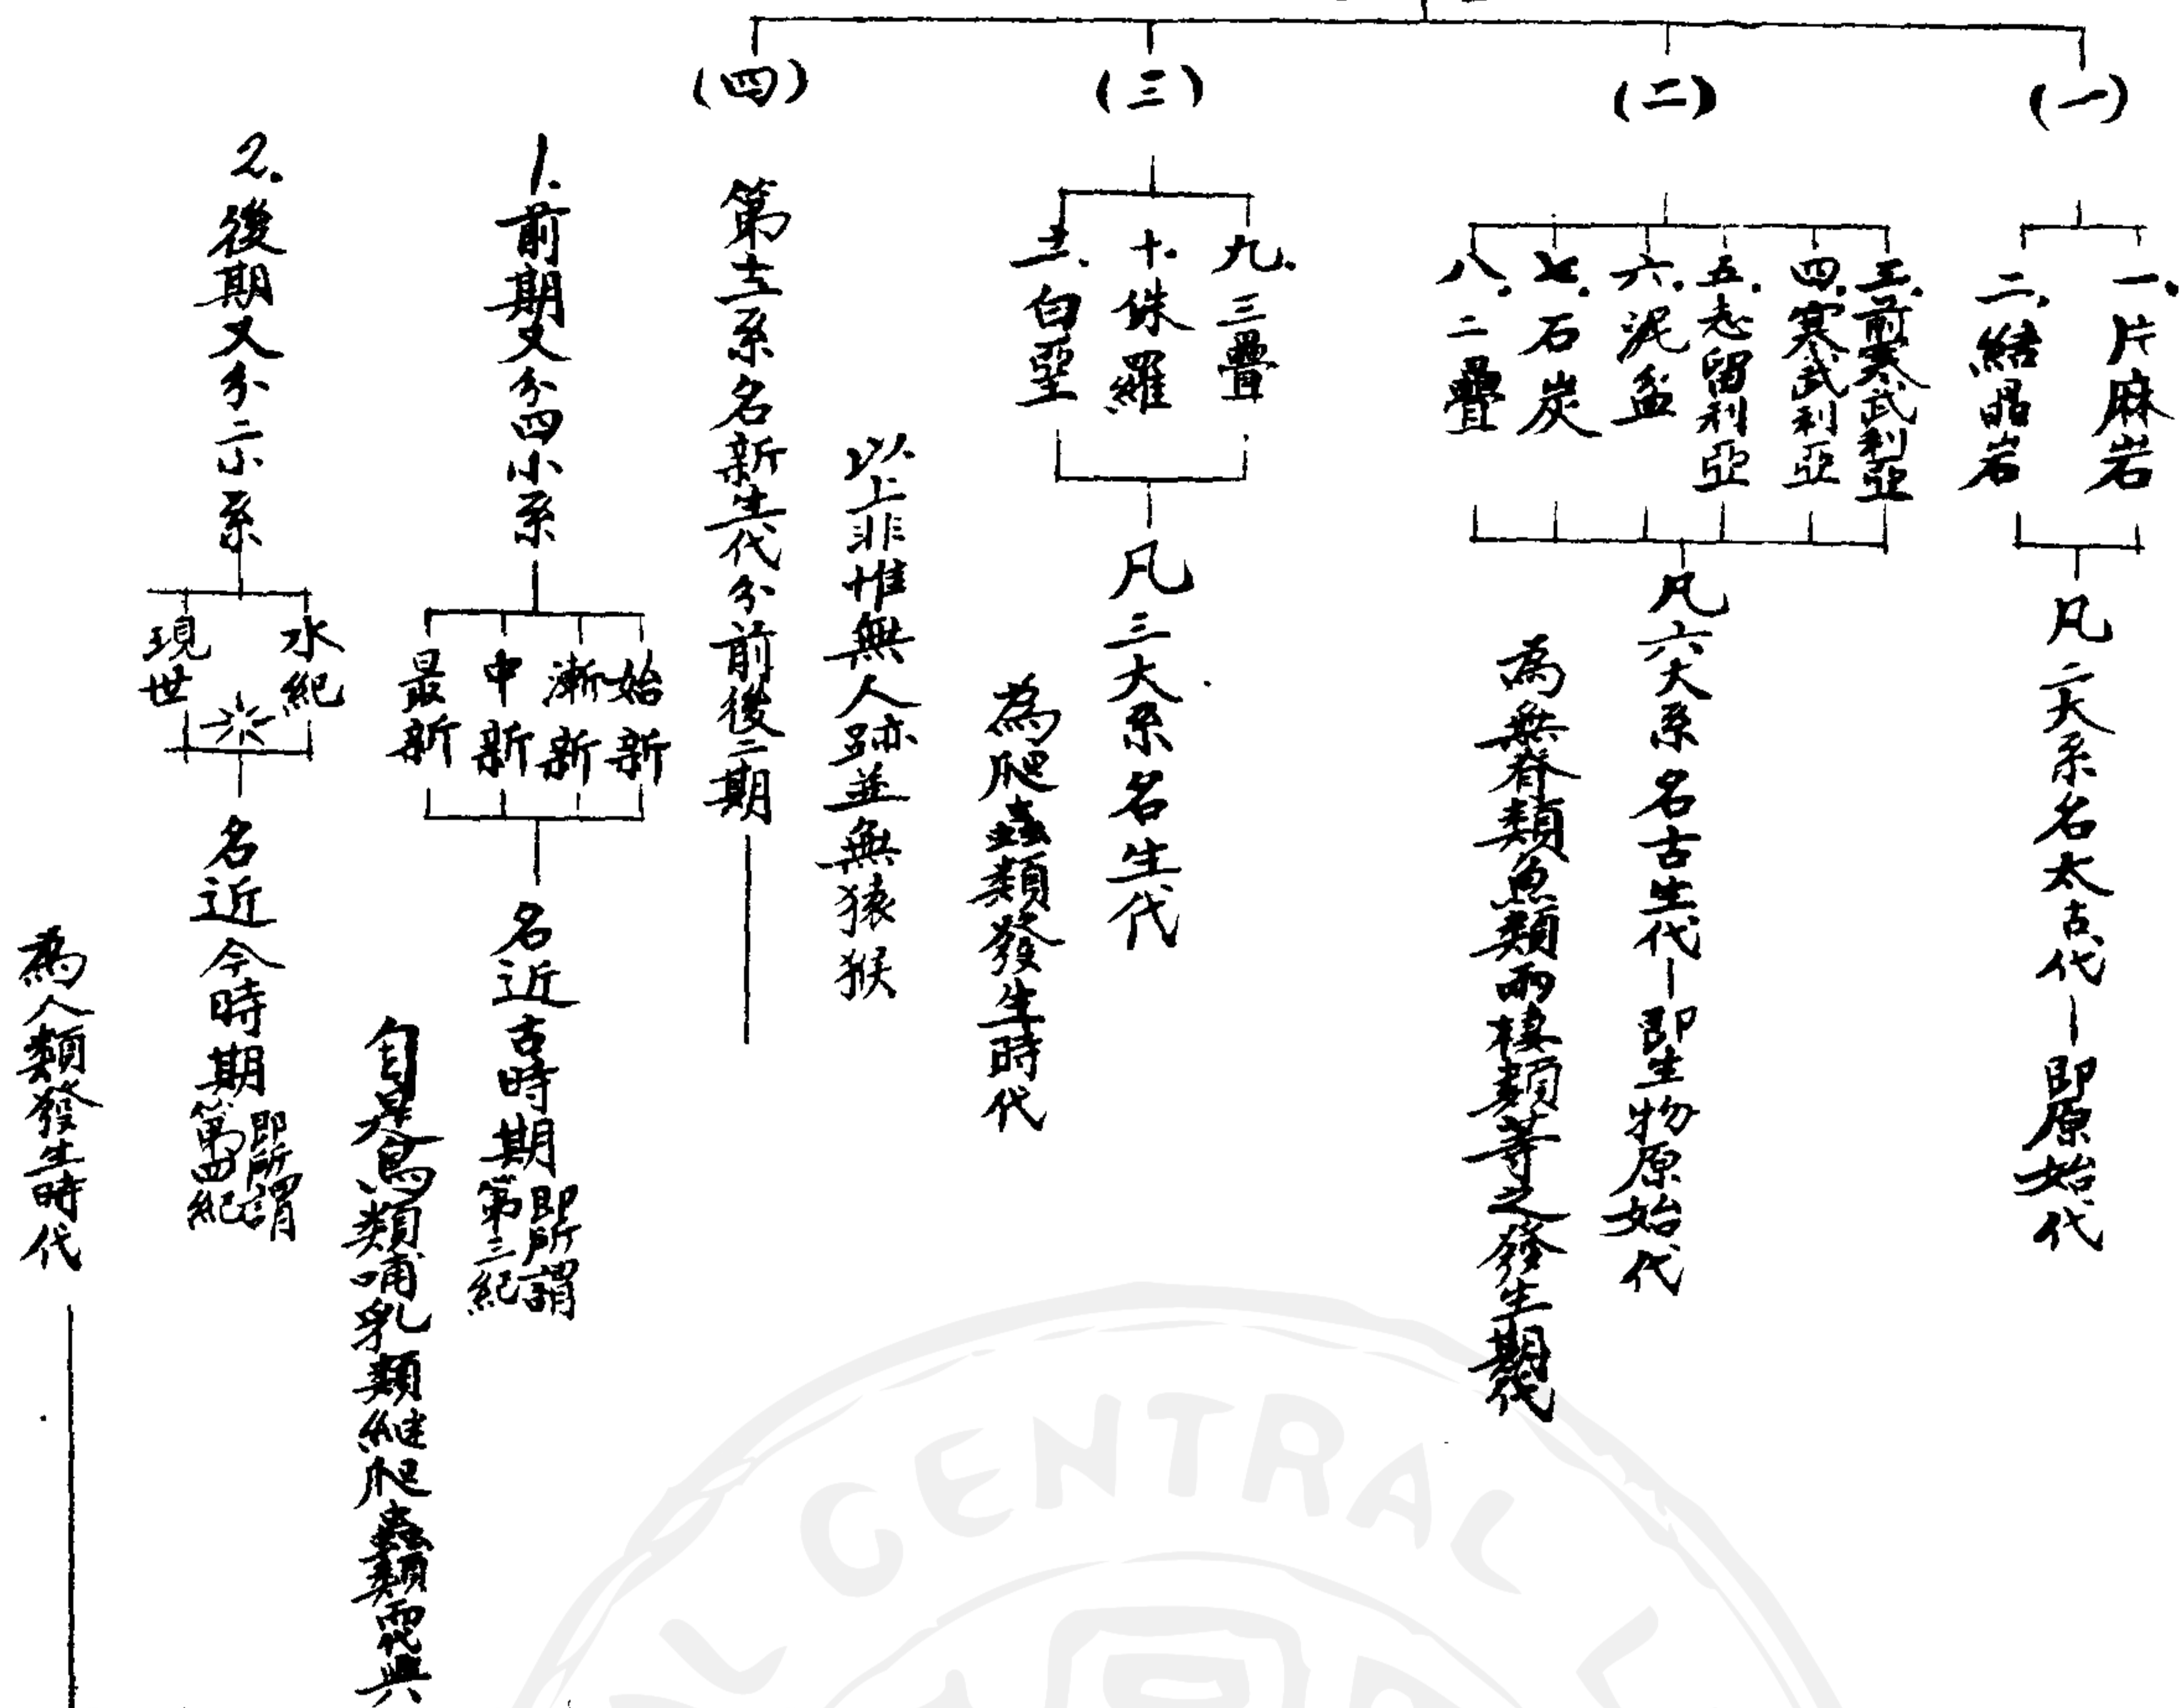 (一)
一.片麻岩
二.結晶岩
凡二大系名太古代—即原始代
(二)
三.前寒武利亞
四.寒武利亞
五.志留利亞
六.泥盆
七.石炭
八.二疊
凡六大系名古生代—即生物原始代
為無脊類魚類兩棲類等之發生期代
(三)
九.三疊
十.侏羅
十一.白堊
凡三大系名生代
為爬蟲類發生時代
以上非惟無人跡並無猿猴
(四)
第十二系名新生代分前後二期
1.前期又分四小系
始新
漸新
中新
最新
名近古時期即所謂第三紀
自是鳥類哺乳類繼爬蟲類而代興
2.後期又分二小系
水紀
現世
名近今時期即所謂第四紀
為人類發生時代
CENTRAL